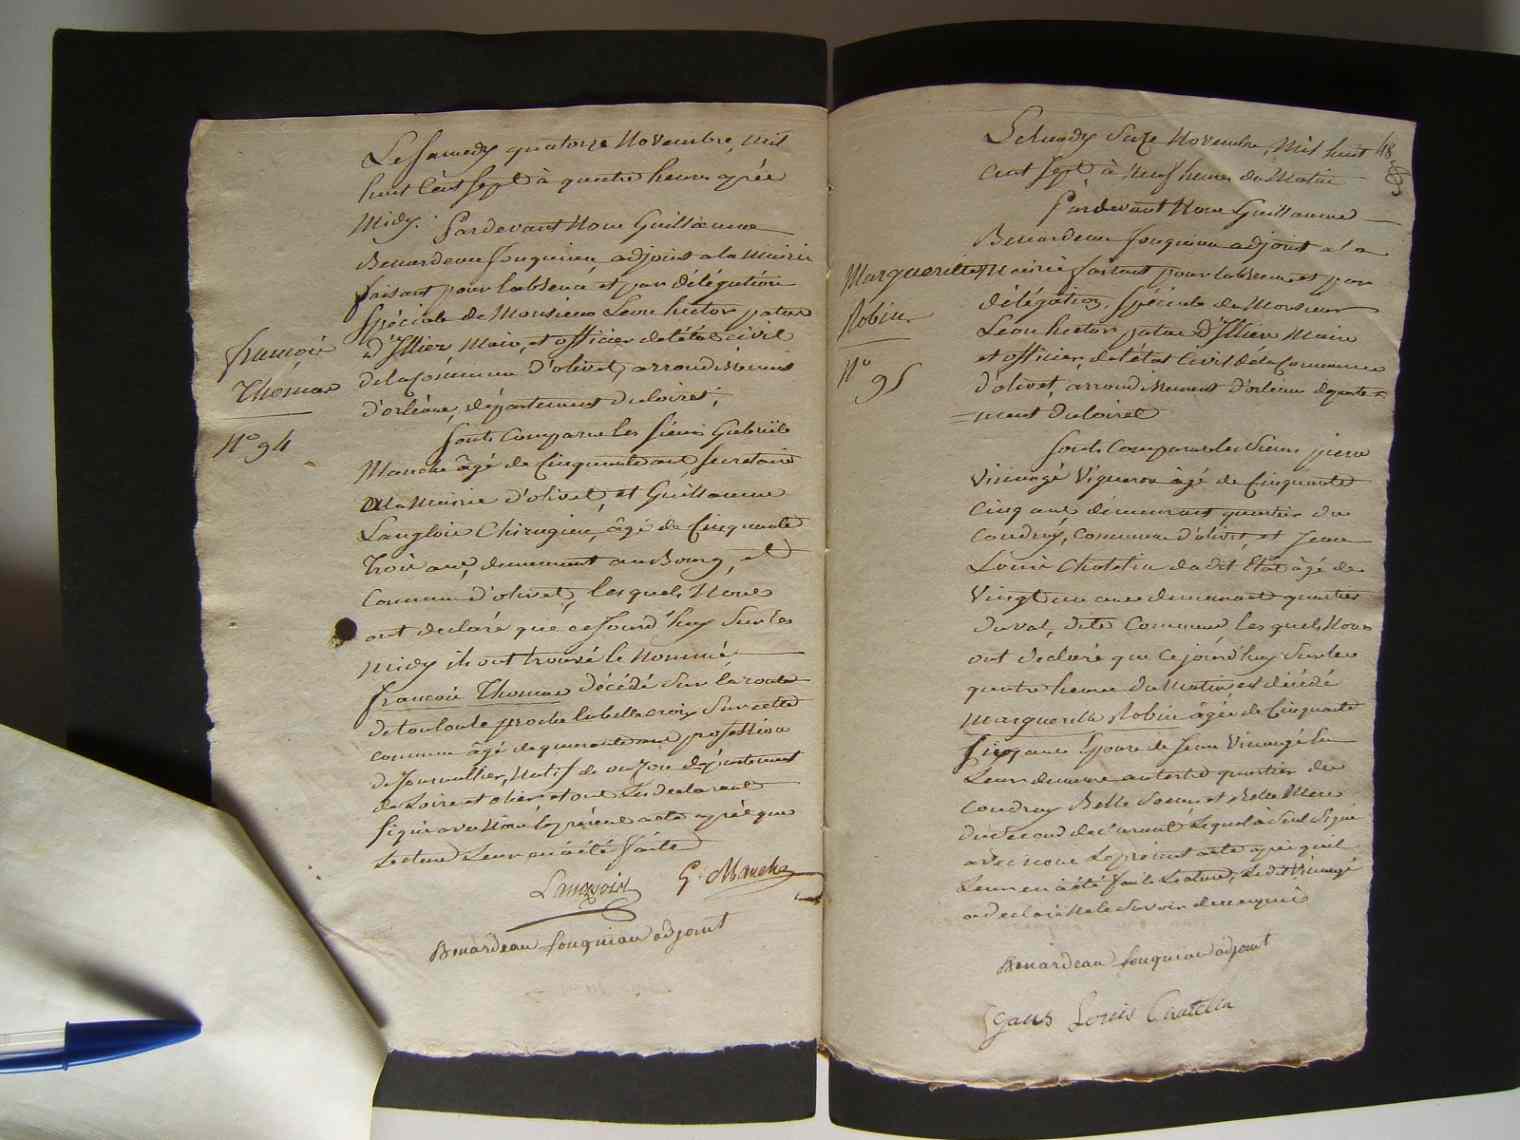 Le samedy quatorze Novembre, mil
huit Cent Sept à quatre heures après
Midy. Pardevant Nous Guillaume
Benardeau Fouqueau, adjoint a la Mairie
faisant pour labsence et par délégation
Spéciale de Monsieur Leon hector patas
D'Illier Maire, et officier de létat civil
de la Commune d'olivet, arrondissement
d'orléans, département du loiret,
françois
Thomas
N.° 94
Sont Comparus les sieurs Gabriële
Manche âgé de Cinquante ans Secretaire
de la Mairie d'olivet, et Guillaume
Langlois Chirugien, âgé de Cinquante
Trois ans, demeurant au Bourg, et
Commune d'olivet, lesquels Nous
ont declaré que ce Jourd'huy Sur les
Midy ils ont trouvé le Nommé
françois Thomas décédé Sur la route
de toulouse proche la belle croix Sur cette
commune âgé de quarante ans profession
de Journallier, Natif de département
du Loire et cher et ont les declarants
Signé avec Nous le présent acte après que
Lecture Leur en a été faite
Langlois G. Manche
Benardeau fouqueau adjoint
Le lundy Seize Novembre, Mil huit
cent Sept à Neuf heures du Matin
48
Pardevant Nous Guillaume
Benardeau fouqueau adjoint a la
Mairie faisant pour labsence et par
délégation, Spéciale de Monsieur
Leon hector patas D'Illiers Maire
et officier de létat Civil de la Commune
d'olivet, arrondissement d'orléans départe=
=ment du loiret
Margueritte
Robin
N.°
95
Sont Comparus les Sieurs piere
Vigneron âgé de Cinquante
Cinq ans demeurant quartier du
Coudray, Commune d'olivet, et Jean
Louis Chatelin du dit Etat âgé de
Vingt un ans demeurant quartier
du val, dite Commune les quels Nous
ont declaré que ce jourd'huy Sur les
quatre heures du Matin, est décédé
Marguerite Robin âgée de Cinquante
Cinq ans Epouse de Jean
Leur demeure audit quartier du
Coudray Belle Soeur et Belle Mere
du Second declarant Lequel a Seul Signé
avec nous Le présent acte après quil
Leur en a été fait Lecture, Le dit
a declaré Ne le Savoir de ce requis
Benardeau fouqueau adjoint
Jean Louis Chatelin